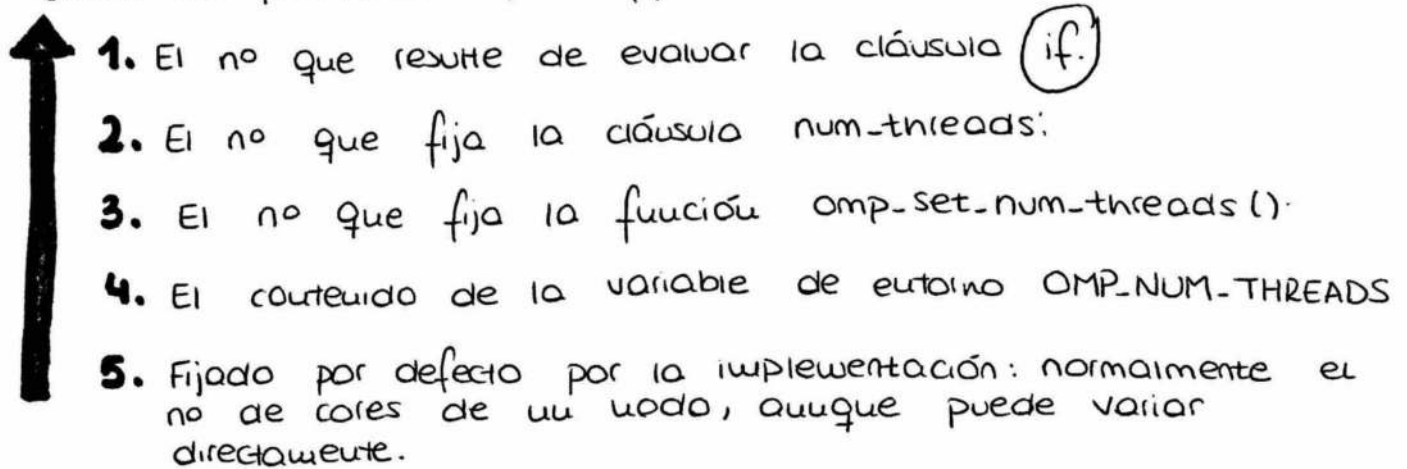 1. El nº que resulte de evaluar la cláusula if.
2. El nº que fija la cláusula num_threads.
3. El nº que fija la función omp_set_num_threads().
4. El contenido de la variable de entorno OMP_NUM_THREADS
5. Fijado por defecto por la implementación: normalmente el
nº de cores de un nodo, aunque puede variar
directamente.